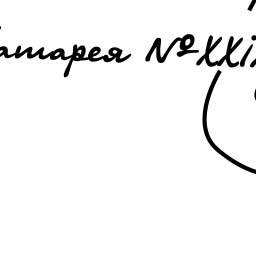 атарея №XXI